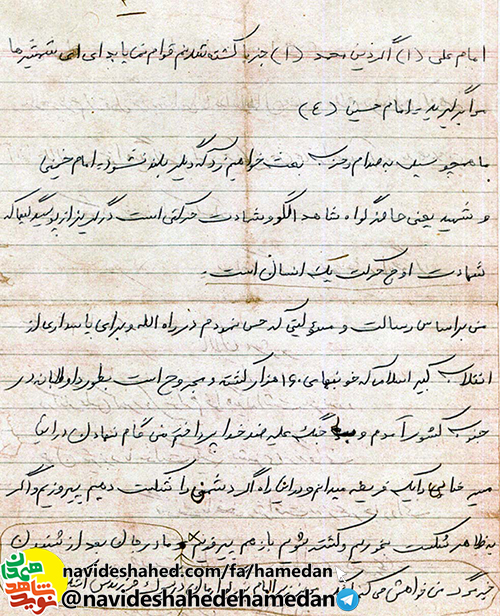 امام علی (ا) اگر دین محمد (ا) جز با کشته شدنم قوام نمی‌یابد ای شمشیرها
مرا بگیرید - امام حسین (ع)
ما همچو سیلی به صدام و حزب بعث خواهیم زد که دیگر بلند نشود - امام خمینی
و شهید یعنی حاضر گواه شاهد الگو و شهادت حرکتی است
شهادت اوج حرکت یک انسان است.
من بر اساس رسالت و مسئولیتی که حس نمودم در راه الله و برای پاسداری از
انقلاب کبیر اسلامی که خونبهای ۱۶۰ هزار کشته و مجروح است بطور داوطلبانه در
جنوب کشور آمدم و جنگ علیه ضد خدا پرداختم من گام نهادن در این
مسیر خدایی را یک فریضه میدانم و در این راه اگر دشمن را شکست دهیم پیروزیم و اگر
به ظاهر شکست بخوریم و کشته شویم باز هم پیروزیم و مادر جان بعد از شنیدن
خبر مرگ من خواهش می‌کنم
navideshahed.com/fa/hamedan
@navideshahedehamedan
نوید شاهد
همدان